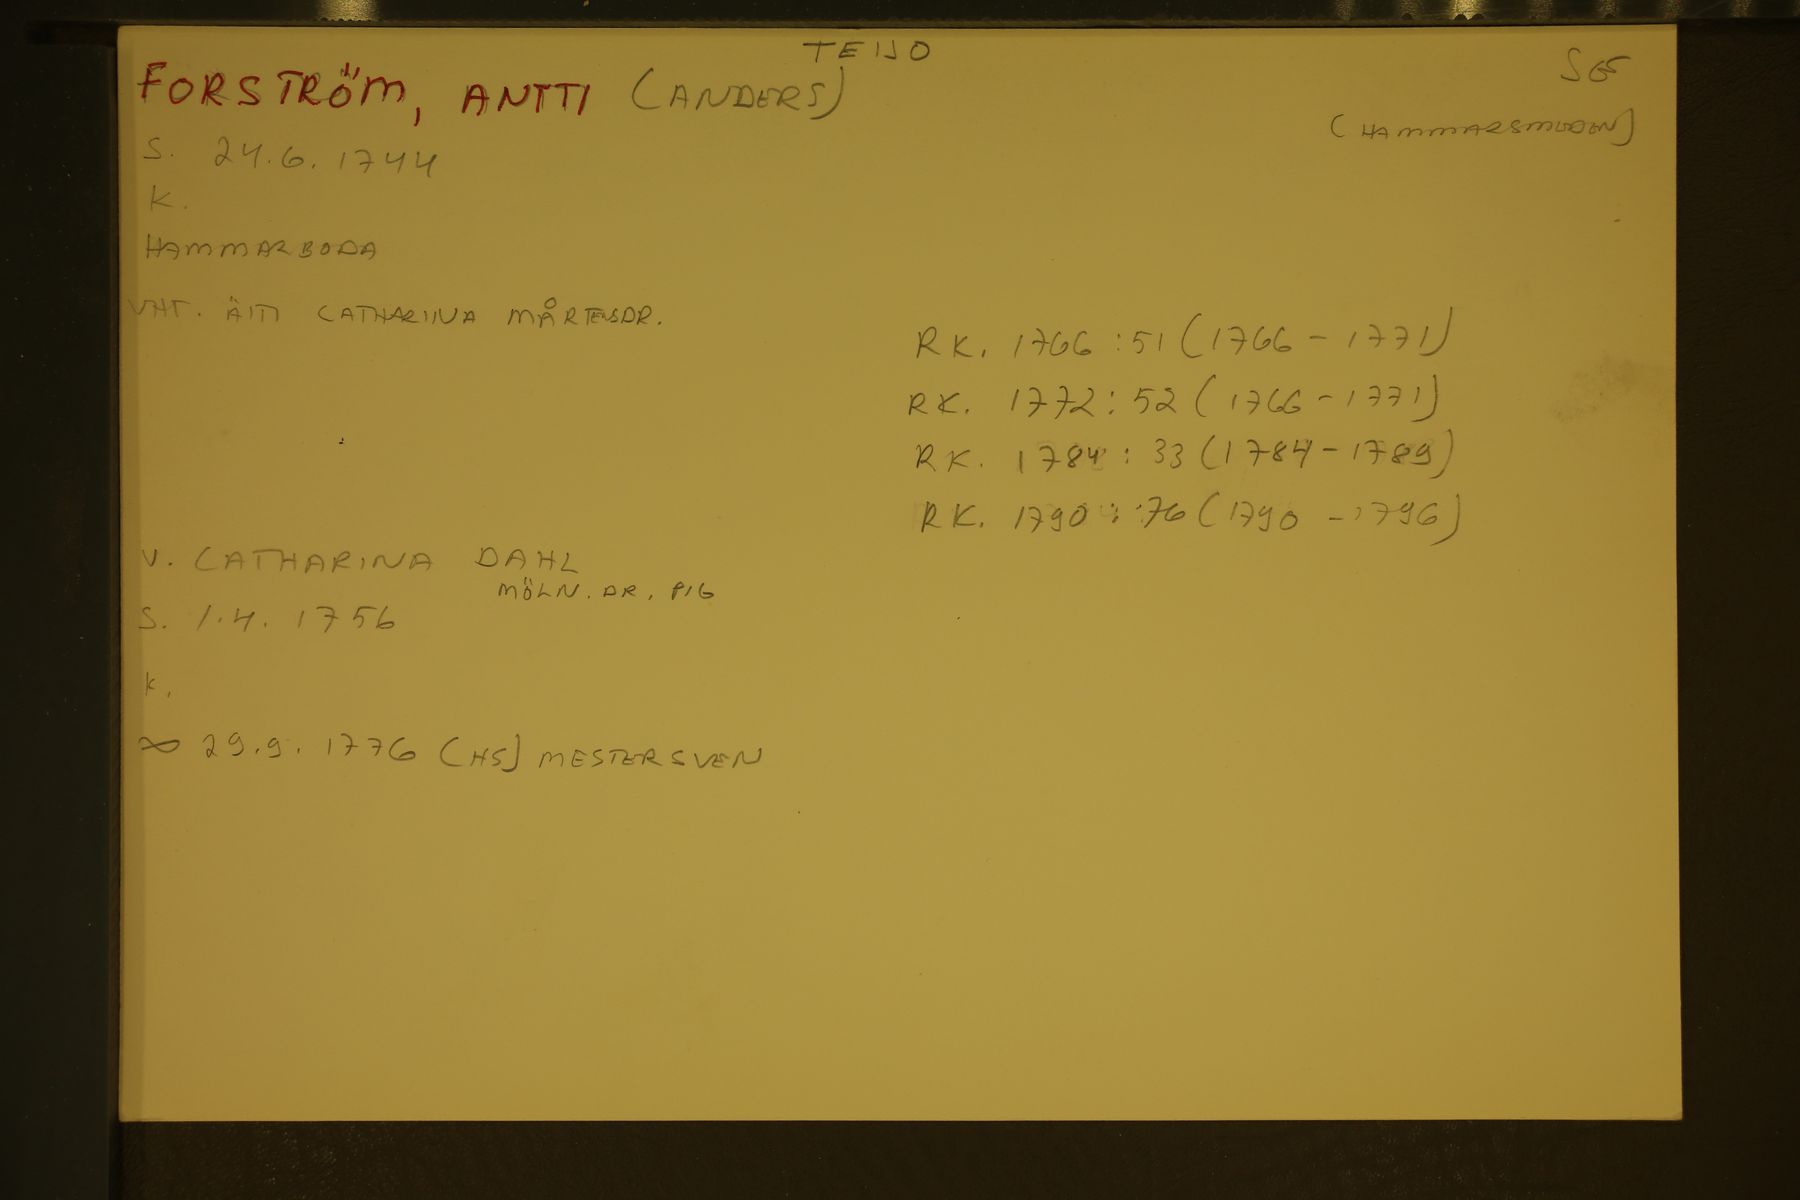 TEIJO
FORSTRÖM, ANTTI (ANDERS)
SGS
(HAMMARSMEDEN)
S. 24.6.1744
K.
HAMMARBODA
VHT. ÄITI CATHARIINA MÅRTENSDR.
RK. 1766:51 (1766-1771)
RK. 1772:52 (1766-1771)
RK. 1784:33 (1784-1789)
RK. 1790:76 (1790-1796)
V. CATHARINA DAHL
MÖLN. DR. PIG
S. 1.4.1756
K.
∞ 29.9.1776 (HS) MESTERSVEN